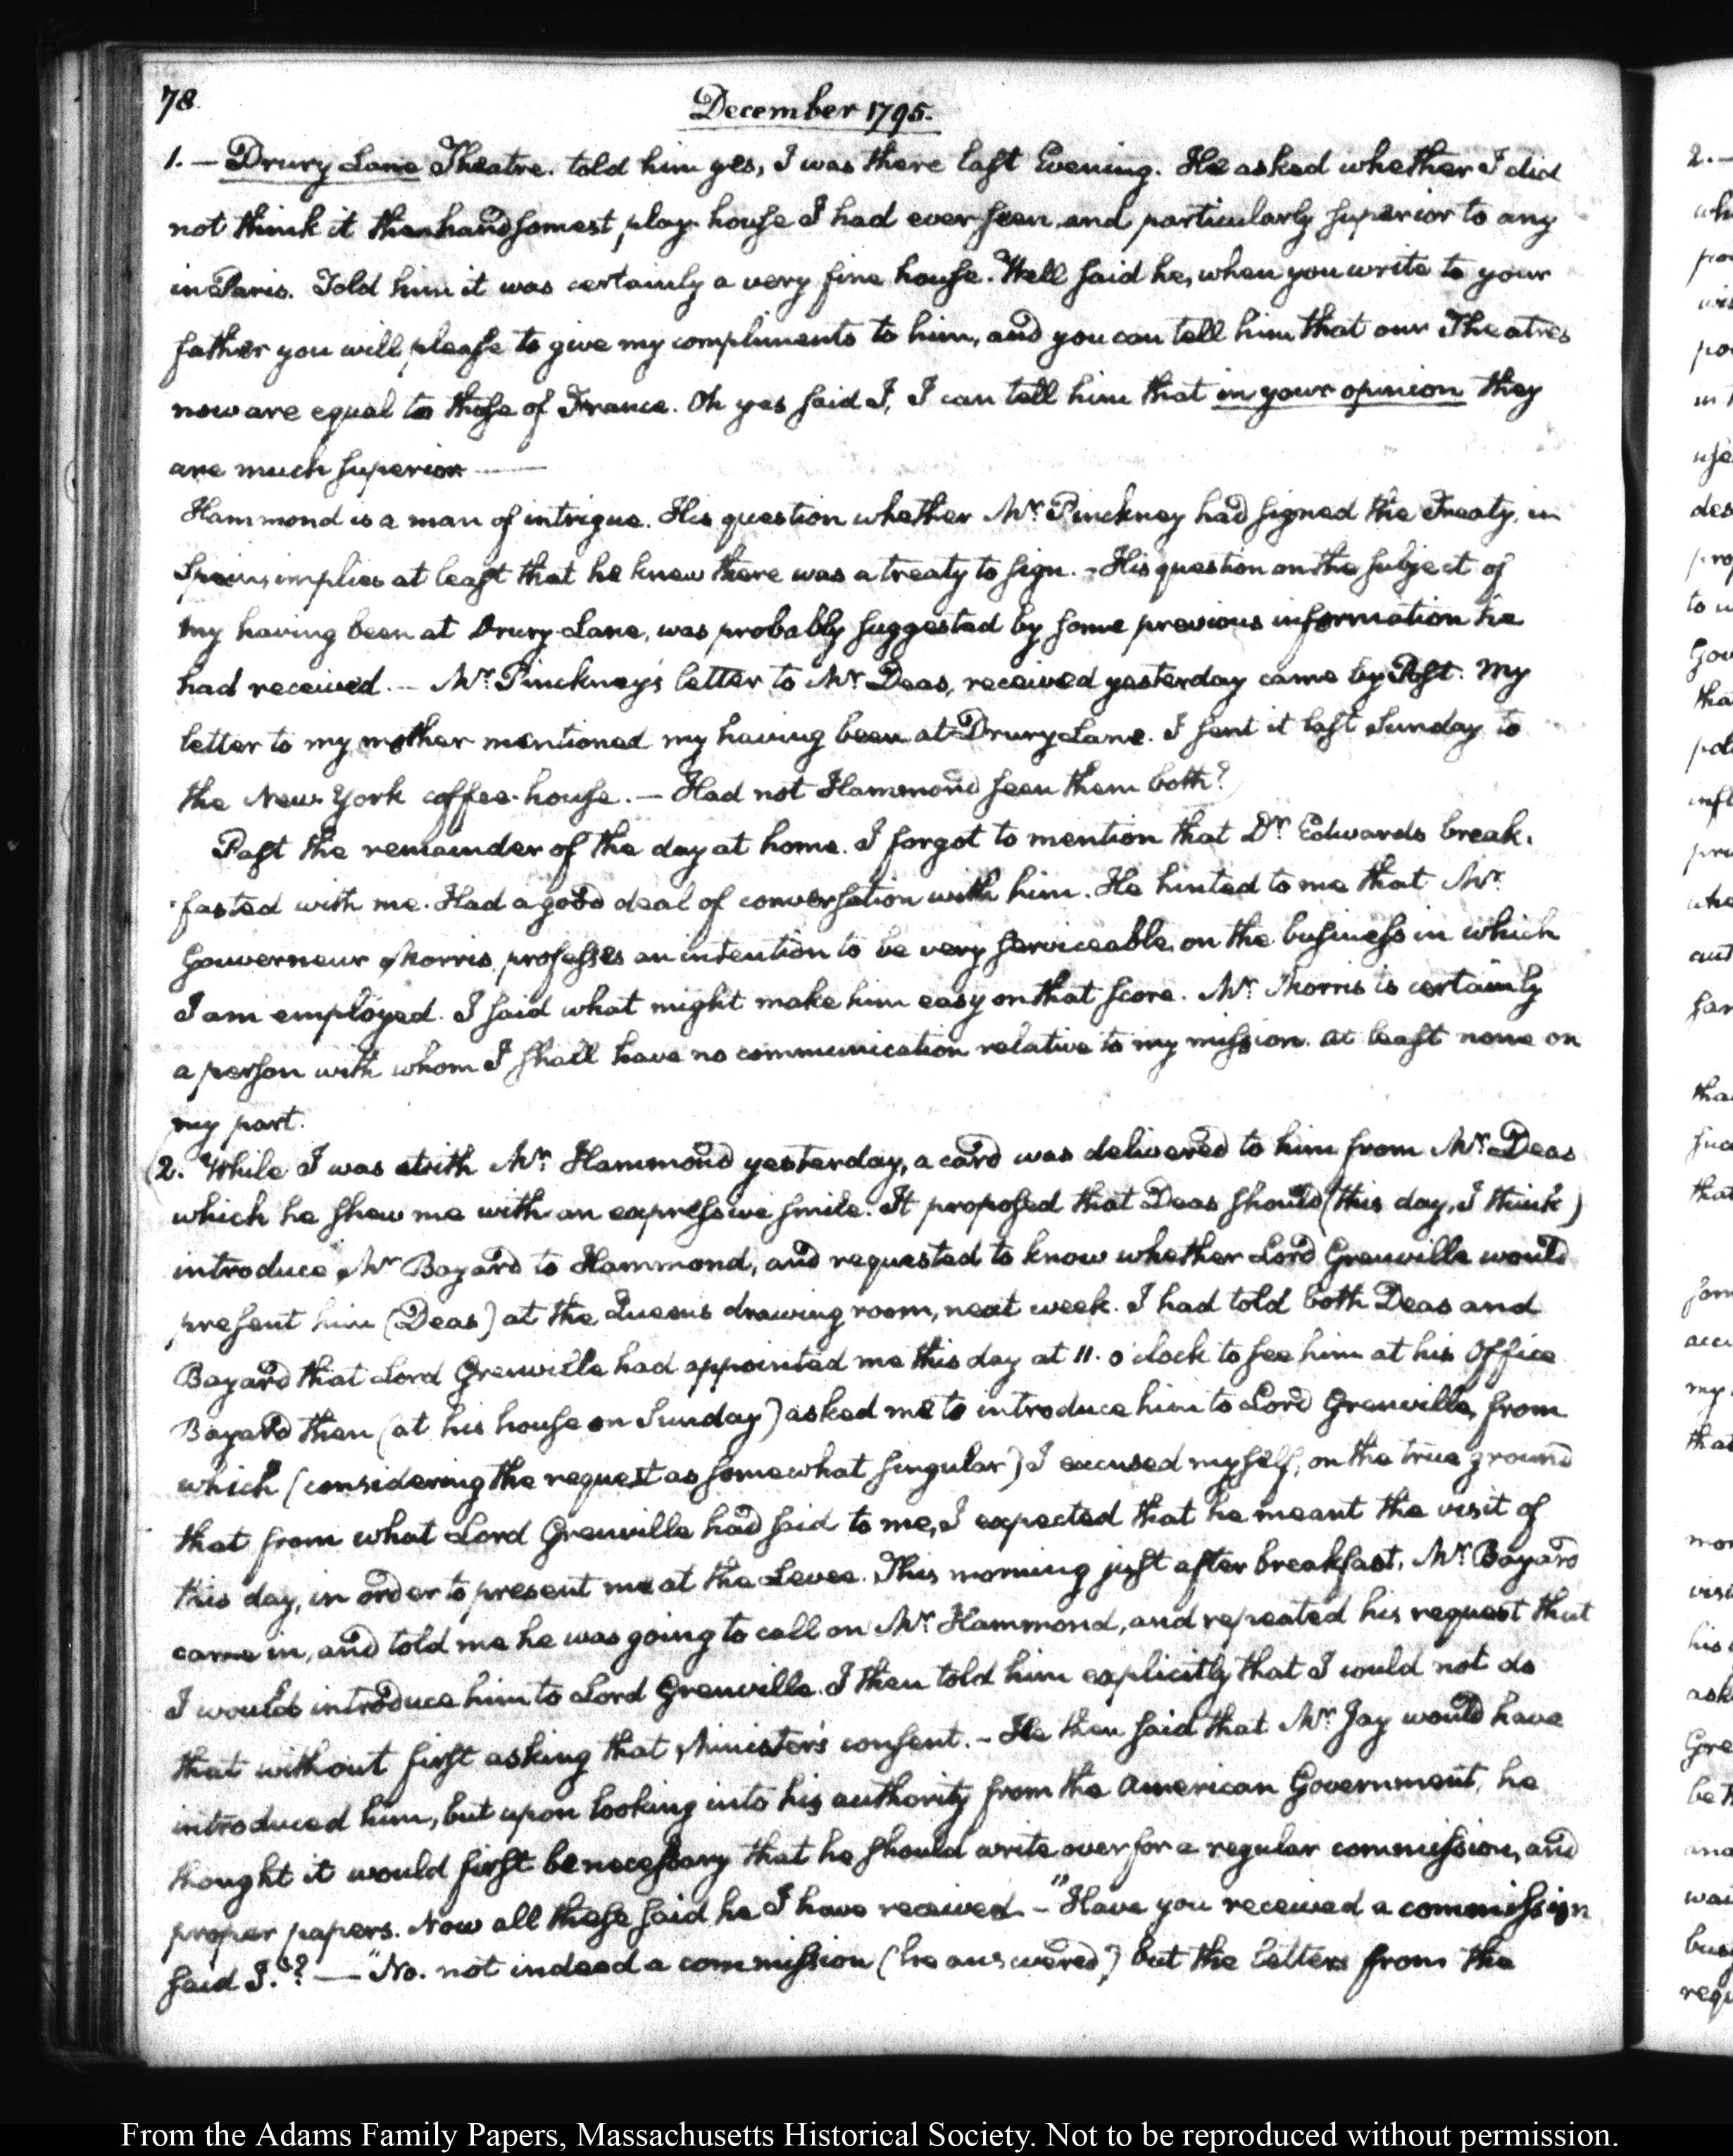 78.
December 1795.
1. — Drury Lane Theatre. told him yes, I was there last Evening. He asked whether I did
not think it the handsomest play-house I had ever seen and particularly superior to any
in Paris. Told him it was certainly a very fine house. Well said he, when you write to your
father you will please to give my compliments to him, and you can tell him that our Theatres
now are equal to those of France. Oh yes said I, I can tell him that in your opinion they
are much superior —
Hammond is a man of intrigue. His question whether Mr. Pinckney had signed the Treaty in
Spain; implies at least that he knew there was a treaty to sign. — His question on the subject of
my having been at Drury-Lane, was probably suggested by some previous information he
had received. — Mr. Pinckney's letter to Mr Deas, received yesterday came by Post. My
letter to my mother mentioned my having been at Drury Lane. I sent it last Sunday to
the New-York coffee-house. — Had not Hammond seen them both?
Past the remainder of the day at home. I forgot to mention that Dr. Edwards break-
fasted with me. Had a good deal of conversation with him. He hinted to me that Mr.
Gouverneur Morris, professes an intention to be very serviceable, on the business in which
I am employed. I said what might make him easy on that score. Mr. Morris is certainly
a person with whom I shall have no communication relative to my mission. at least none on
my part.
2. While I was with Mr. Hammond yesterday, a card was delivered to him from Mr. Deas
which he shew me with an expressive smile. It proposed that Deas should (this day, I think)
introduce Mr Bayard to Hammond, and requested to know whether Lord Grenville would
present him (Deas) at the Queens drawing room, next week. I had told both Deas and
Bayard that Lord Grenville had appointed me this day at 11. o'clock to see him at his Office
Bayard then (at his house on Sunday) asked me to introduce him to Lord Grenville, from
which (considering the request as somewhat singular) I excused myself, on the true ground
that from what Lord Grenville had said to me, I expected that he meant the visit of
this day, in order to present me at the Levee. This morning just after breakfast, Mr. Bayard
came in, and told me he was going to call on Mr. Hammond, and repeated his request that
I would introduce him to Lord Grenville. I then told him explicitly that I would not do
that without first asking that Minister's consent. — He then said that Mr. Jay would have
introduced him, but upon looking into his authority from the American Government, he
thought it would first be necessary that he should write over for a regular commission, and
proper papers. Now all these said he I have received — "Have you received a commission
said I."? — "No. not indeed a commission (he answered) but the letters from the
2. —
From the Adams Family Papers, Massachusetts Historical Society. Not to be reproduced without permission.